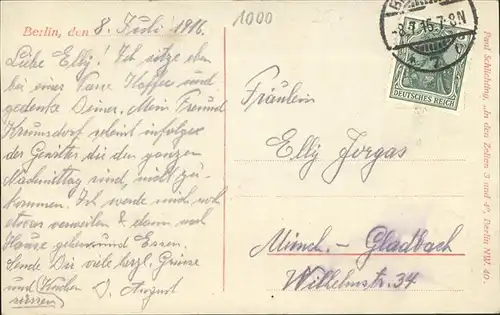 Berlin, den 8. Juli 1916.
Liebe Elly! Ich sitze eben
bei einer Tasse Kaffee und
gedenke Deiner. Mein Freund
Krumsdorf scheint infolge
der Gewitter die den ganzen
Nachmittag sind, nicht zu
kommen. Ich werde noch
etwas verweilen & dann nach
Hause gehen und Essen.
Sende Dir viele herzl. Grüsse
und Küsschen
August
1000
-8.7.15.7-8N
DEUTSCHES REICH
Fräulein
Elly Jorgas
Münch.-Gladbach
Wilhelmstr. 34
Paul Schlichting, „In den Zelten 3 und 4", Berlin NW. 40.